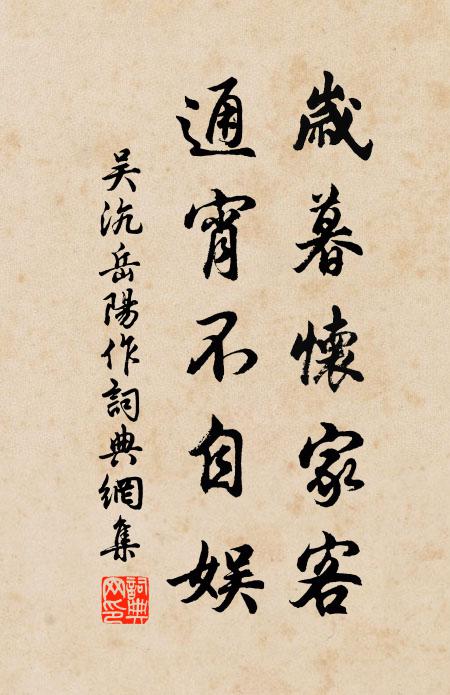 歲暮懷家客
通宵不自娛
吳沆岳陽作詞典網集
詞典網印